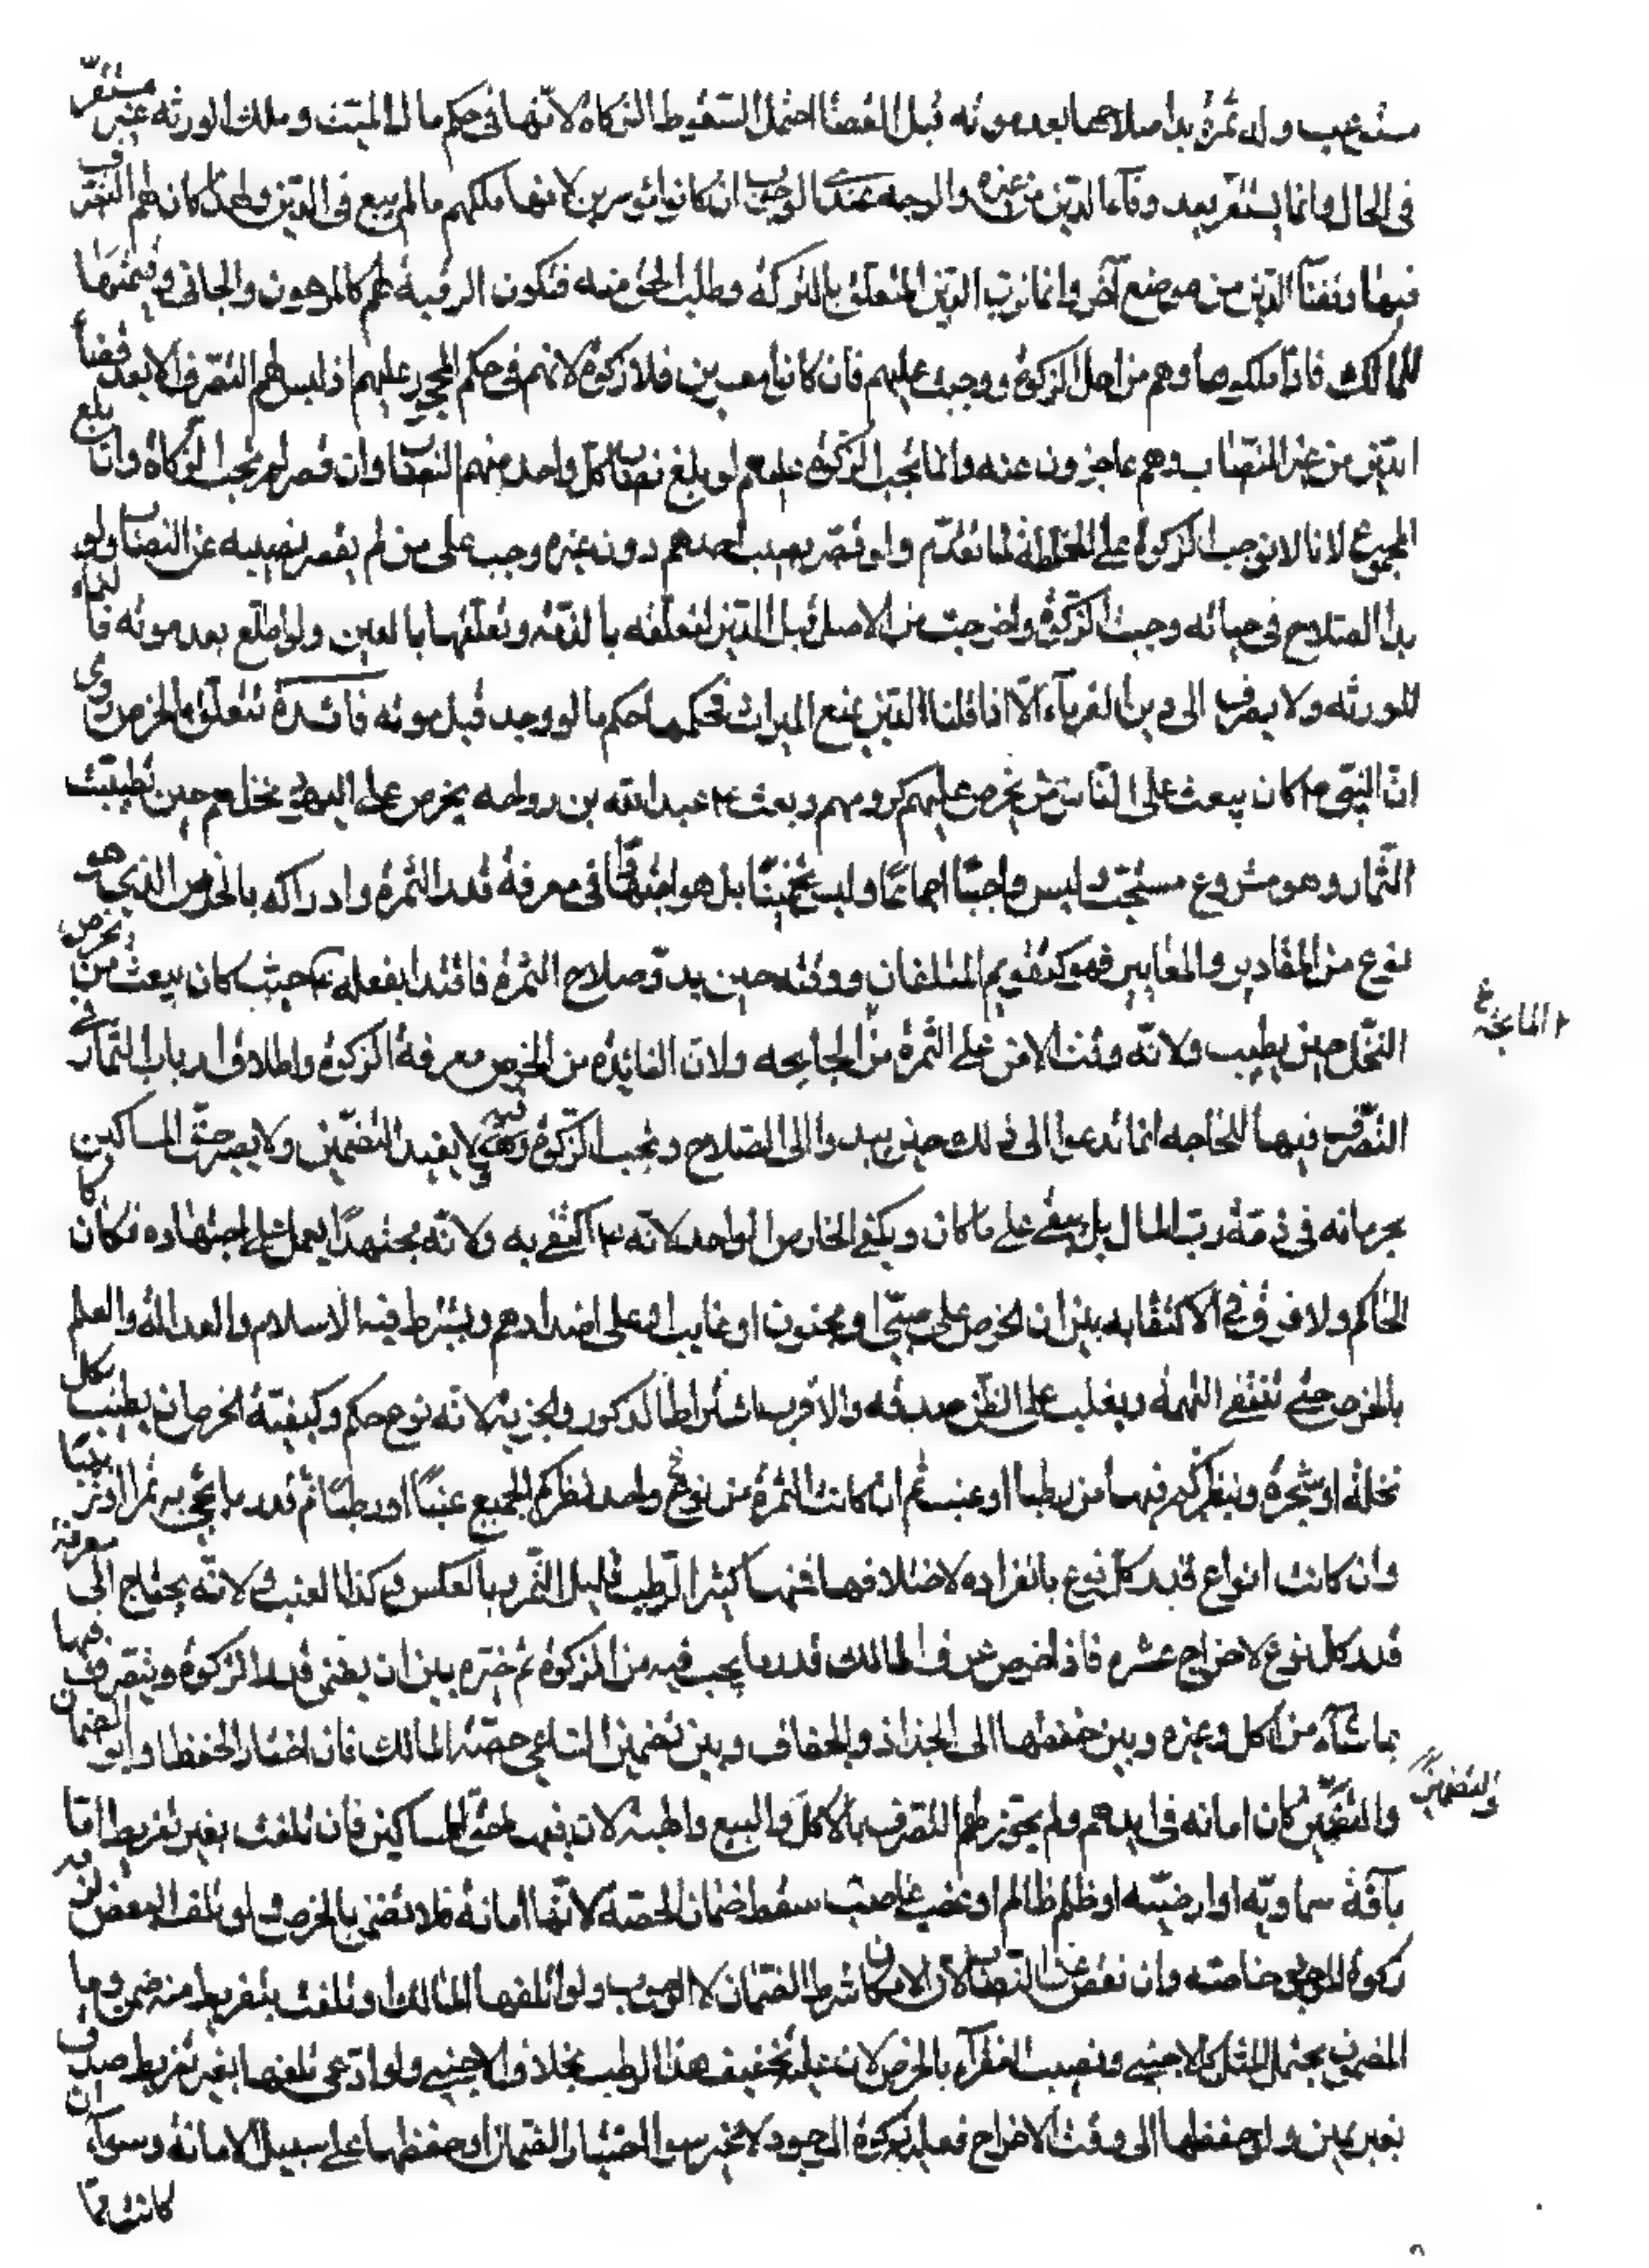 مستوعب ولد ثمرة بدا صلاحها بعد موته قبل القضا احتمل السقوط الزكاة لانها في حكم مال الميت وملك الورثة غير مستقر
في الحال وانما يستقر بعد وفآء الدين من غيره والوجه عندي الوجوب ان كانوا موسرين لانها ملكهم ما لم يبع في الدين ولهذا كان لهم التصرف
فيها وقضآ الدين من موضع آخر وانما لرب الدين المتعلق بالتركة وطلب الحق منه فتكون الرقبة لهم كالمرهون والجاني وقيمتها
للمالك فاذا ملكوها وهم من اهل الزكوة ووجبت عليهم فان كانوا معسرين فلا زكوة لانهم في حكم المحجور عليهم اذ ليس لهم التصرف الا بعد قضآ
الدين من غير النصاب وهم عاجزون عنه وانما تجب الزكوة عليهم لو بلغ نصيب كل واحد منهم النصاب وان قصر لم تجب الزكاة وان بلغ
المجموع لانا لا نوجب الزكوة على الخلطة لما تقدم ولو قصر نصيب احدهم دون غيره وجب على من لم يقصر نصيبه عن النصاب ولو
بدا الصلاح في حياته وجبت الزكوة واخرجت من الاصل قبل الدين لتعلقه بالذمة وتعلقها بالعين ولو اطلع بعد موته فالنماء
للورثة ولا يصرف الى دين الغرمآء الا اذا قلنا الدين يمنع الميراث فحكمها حكم ما لو وجد قبل موته فائدة تتعلق بالخرص روى
ان النبي م كان يبعث على الناس من يخرص عليهم كرومهم وبعث م عبد الله بن رواحه يخرص على اليهود نخلهم حين تطيب
الثمار وهو مشروع مستحب وليس واجبا اجماعا وليس تخمينا بل هو اجتهاد في معرفة قدر الثمرة وادراكه بالخرص الذي هو
نوع من المقادير والمعايير فهو كتقويم المتلفات ووقته حين بدو صلاح الثمرة فاقتدا بفعله م حيث كان يبعث من يخرص
النخل حين يطيب ولانه وقت الامن على الثمرة من الجايحه ولان الفائدة من الخرص معرفة الزكوة واطلاق ارباب الثمار في
التصرف فيها للحاجه انما تدعوا الى ذلك حين يبدوا الى الصلاح وتجب الزكوة فيه ولا يفيد التضمين ولا يصير حق المساكين
بجريانه في ذمة رب المال بل يبقى على ما كان ويكفي الخارص الواحد لانه م اكتفى به ولانه مجتهدا يعمل على اجتهاده فكان كا
الحاكم ولا فرق في الاكتفا به بين ان يخرص على صبي او مجنون او غايب او على اضدادهم ويشترط فيه الاسلام والعدالة والعلم
بالخرص حتى تنتفي التهمة ويغلب على الظن صدقه والاقرب اشتراط الذكور والحرية لانه نوع حكم وكيفية الخرص ان يطيف بكل
نخلة او شجرة وينظر كم فيها من رطبا او عنب ثم ان كانت الثمرة من نوع واحد نظر كم الجميع عنبا او رطبا ثم قدر ما يجي به تمرا او زبيبا
وان كانت انواع قدر كل نوع بانفراده لاختلافها فمنها كثير الرطب قليل التمر وبالعكس وكذا العنب ولانه يحتاج الى معرفة
قدر كل نوع لاخراج عشره فاذا خرص عرف المالك قدر ما يجب فيه من الزكوة ثم خيره بين ان يضمن قدر الزكوة ويتصرف فيها
بما شآء من اكل وغيره وبين حفظها الى الجذاذ والجفاف وبين تضمين الساعي حصة المالك فان اختار الحفظ وابوا الضمان
والتضمين كان امانه في ايديهم ولم يجوز لهم التصرف بالاكل والبيع والهبة لان فيها حق المساكين فان تلفت بغير تفريط اما
بآفة سماويه او ارضيه او ظلم ظالم او غصب غاصب سقط ضمان الحصة لانها امانة فلا تضمن بالخرص ولو تلف البعض لزمه
زكوة الموجود خاصة وان نقص عن النصاب لان الامكان شرط الضمان لا الوجوب ولو اتلفها المالك او تلفت بتفريط منه ضمن وما
المضمون يحتمل المثل كالاجنبي ونصيب الفقرآء بالخرص لان عليه تجفيف هذا الرطب بخلاف الاجنبي ولو ادعى تلفها بغير تفريط صدق
بغير يمين ولو حفظها الى وقت الاخراج فعليه زكوة الموجود لا غير سوا اختار الضمان او حفظها على سبيل الامانة وسوآء ان
كانت مما
والتضمين